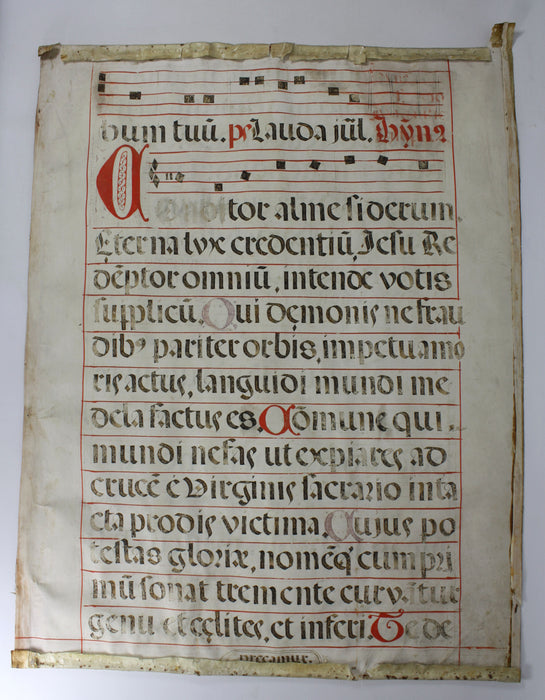 bum tuū. ps Lauda jūl. Hȳn9
Conditor alme siderum.
Eterna lux credentiū, Jesu Re
dēptor omniū, intende votis
supplicū. Qui dęmonis ne frau
dib9 pariter orbis, impetu amo
ris actus, languidi mundi me
dela factus es. Cōmune qui
mundi nefas ut expiares ad
crucē è Virginis sacrario inta
cta prodis victima. Cujus po
testas gloriæ, nomēq; cum pri
mū sonat tremente curvātur
genu et cęlites, et inferi. Te de
precamur.